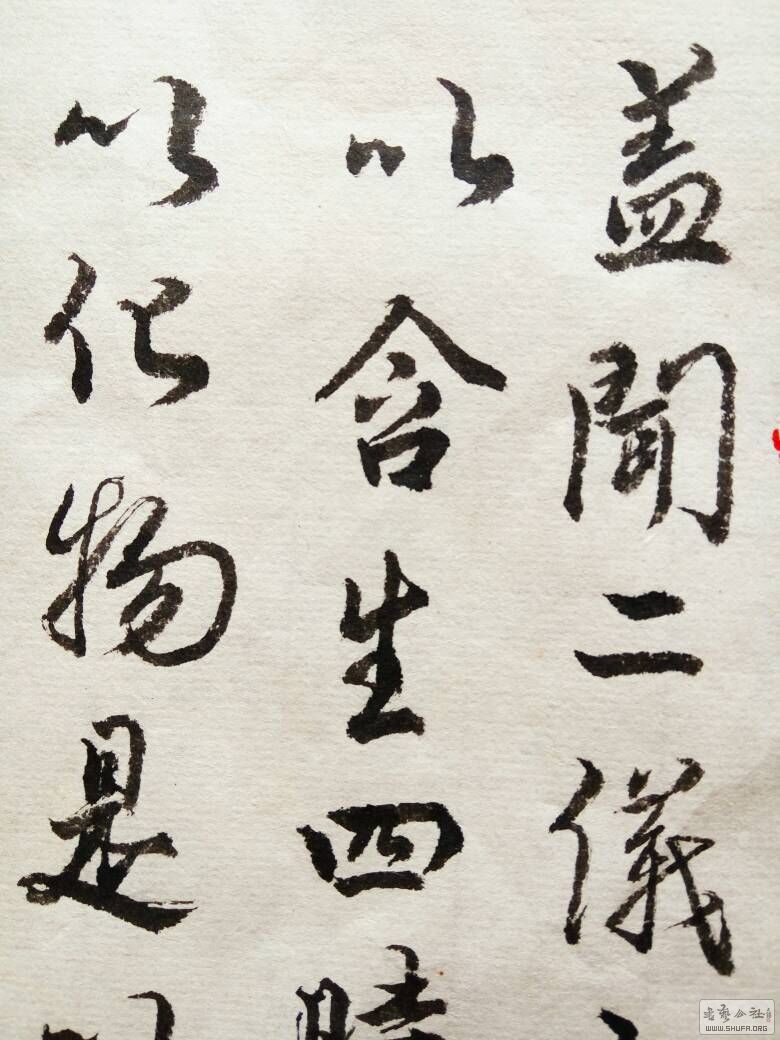 盖聞二儀
以含生四時
以化物是以
書藝公社
WWW.SHUFA.ORG